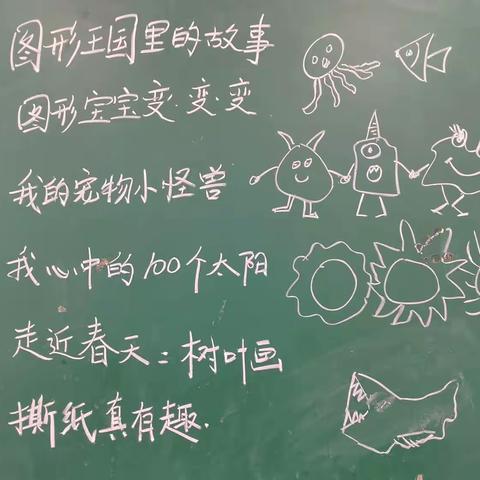 图形王国里的故事
图形宝宝变·变·变
我的宠物小怪兽
我心中的100个太阳
走近春天：树叶画
撕纸真有趣.